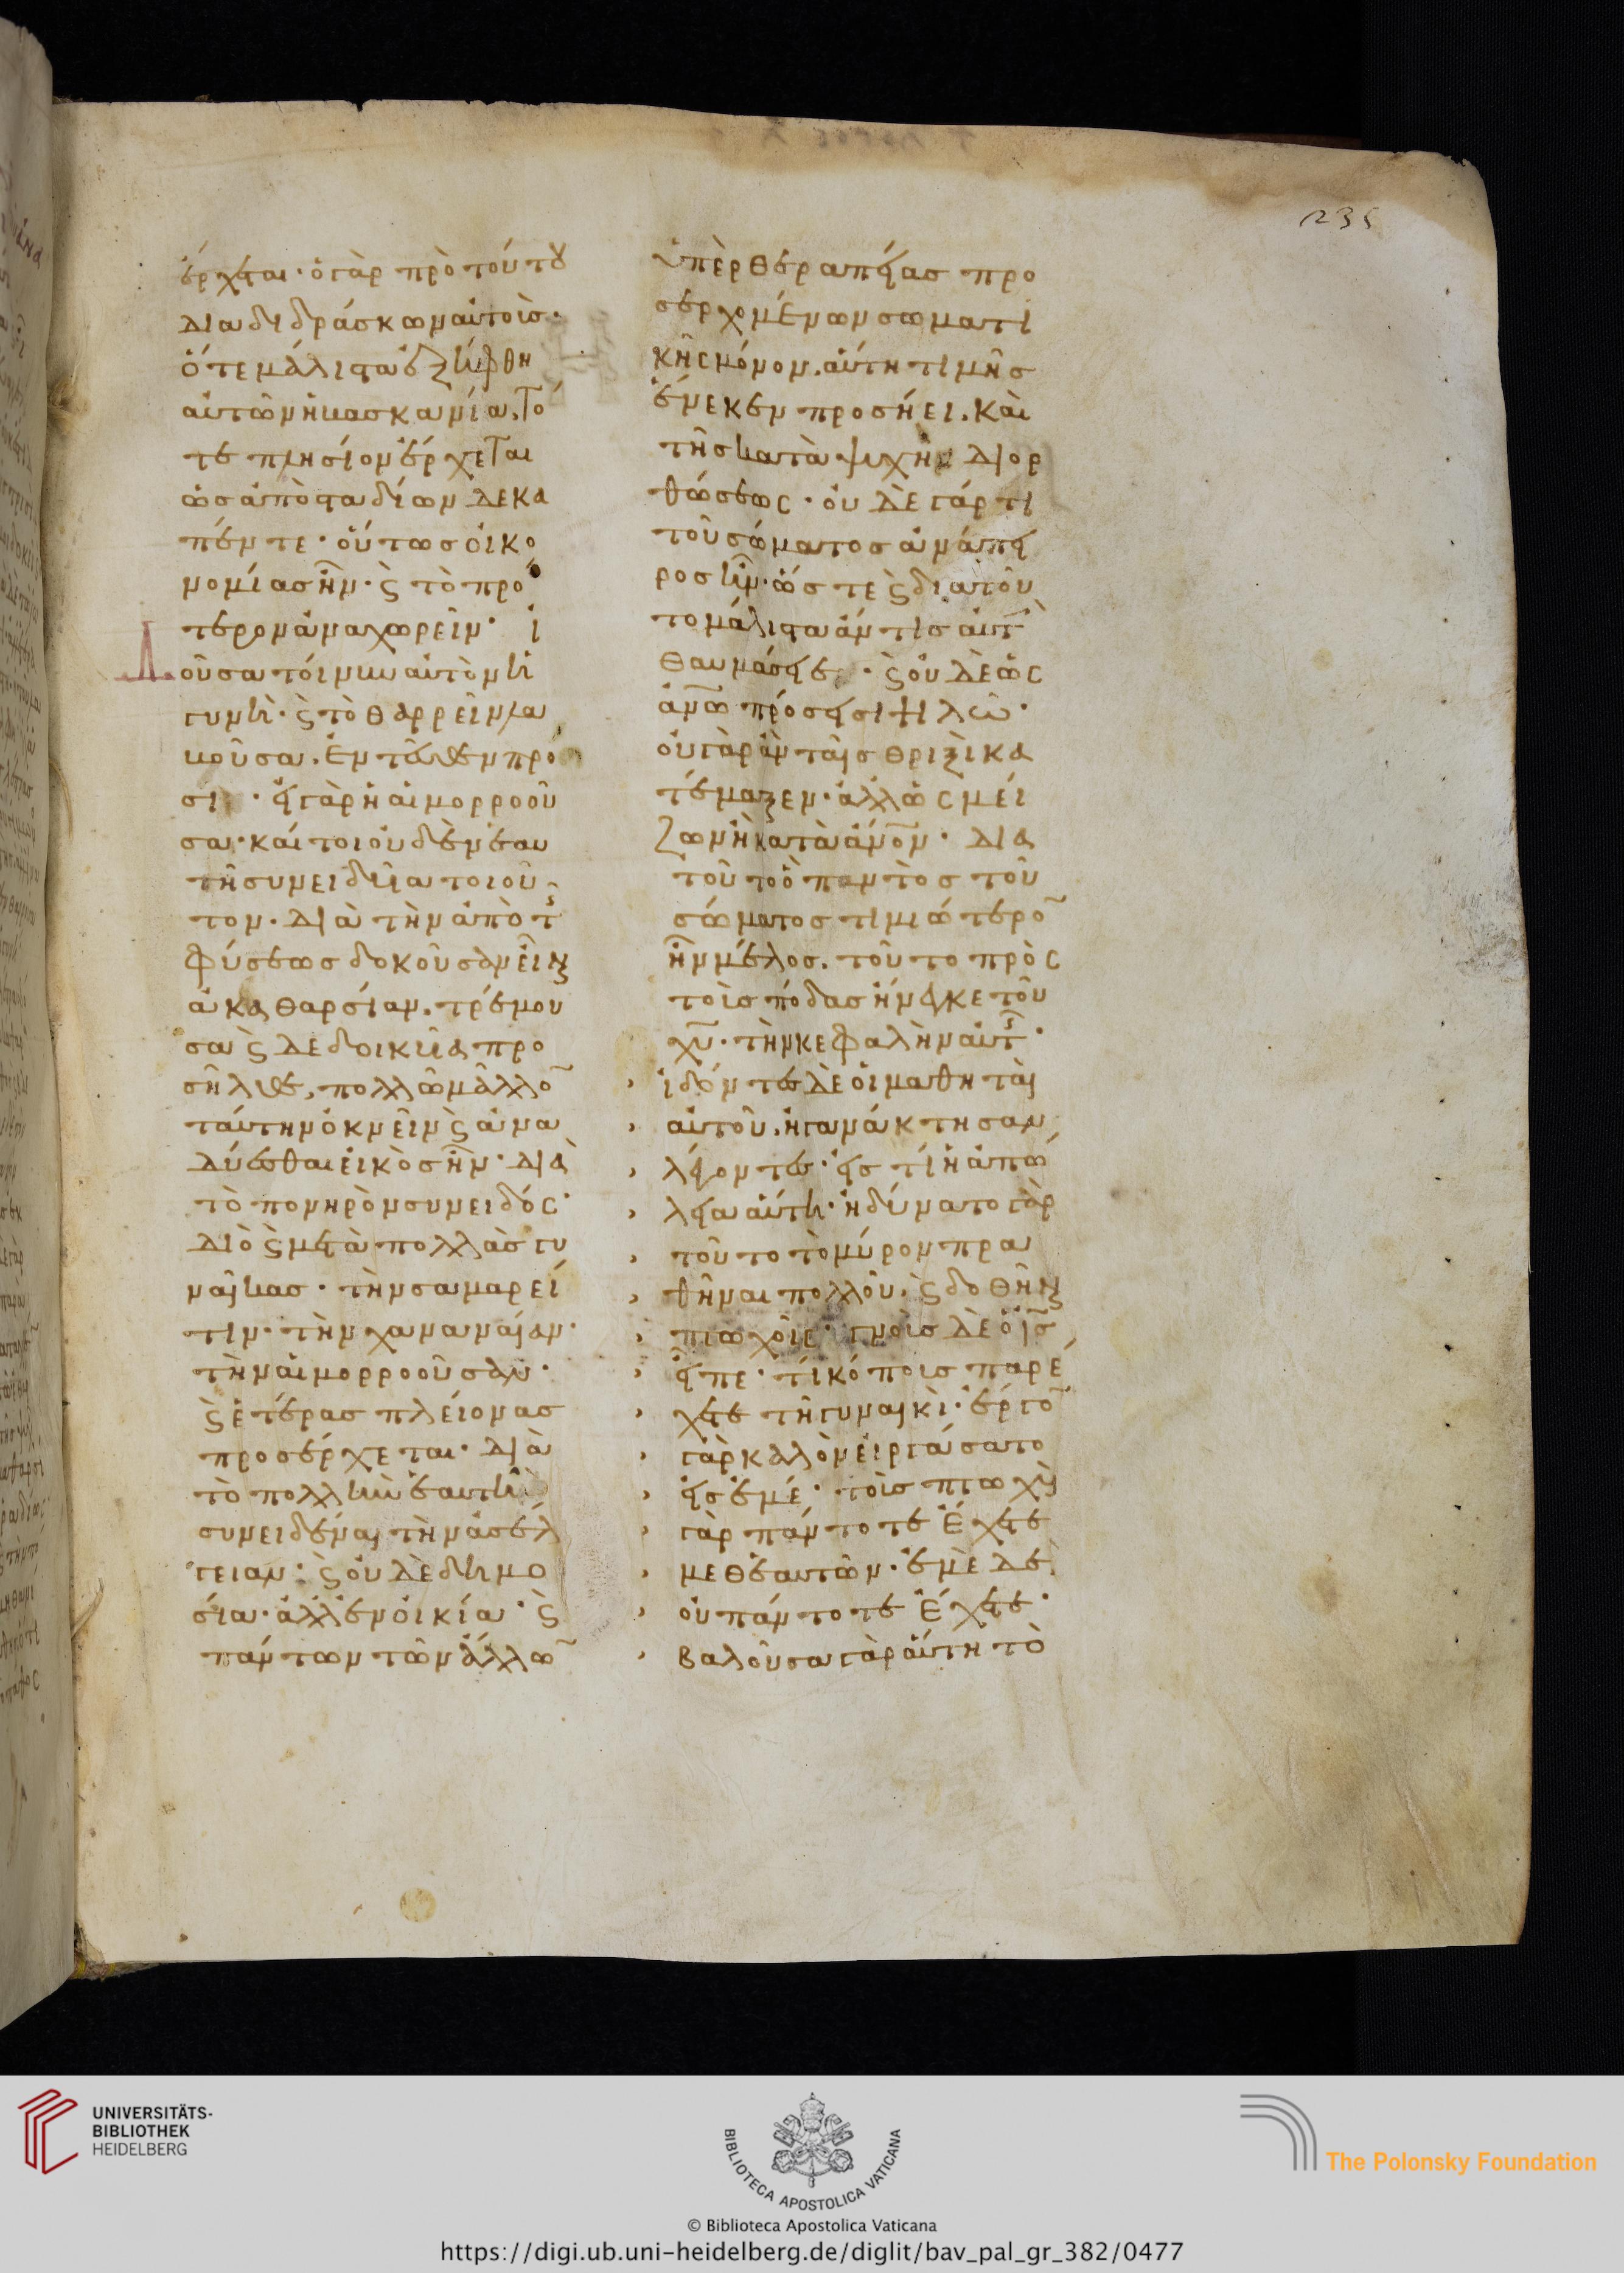 235
ἔρχεται· ὁ γὰρ πρὸ τούτου
διαδιδράσκων αὐτοῖς·
ὅτε μάλιστα ἐξήφθη
αὐτῶν ἡ βασκανία. τό
τε πλησίον ἔρχεται
ὡς ἀπὸ σταδίων δεκα
πέντε· οὕτως οἰκο
νομίας ἦν· ϛ τὸ πρό
τερον ἀναχωρεῖν· ἰ
Δοῦσα τοίνυν αὐτὸν ἡ
γυνὴ· ϛ τὸ θαρρεῖν λα
βοῦσα. ἐντεῦθεν πρό
σει· εἰ γὰρ ἡ αἱμορροοῦ
σα· καίτοι οὐδὲν ἑαυ
τῇ συνειδυῖα τοιοῦ
τον. διὰ τὴν ἀπὸ τῆς
φύσεως δοκοῦσαν εἶναι
ἀκαθαρσίαν. τρέμου
σα ϛ δεδοικυῖα προ
σῆλθε, πολλῶ μᾶλλον
ταύτην ὀκνεῖν ϛ ἀνα
δύεσθαι εἰκὸς ἦν· διὰ
τὸ πονηρὸν συνειδός·
διὸ ϛ μετὰ πολλὰς γυ
ναῖκας· τὴν σαμαρεί
τιν· τὴν χαναναίαν·
τὴν αἱμορροοῦσαν·
ϛ ἑτέρας πλείονας
προσέρχεται· διὰ
τὸ πολλὴν ἑαυτῇ
συνειδέναι τὴν ἀσέλ
γειαν· ϛ οὐδὲ δημο
σία· ἀλλ' ἐν οἰκία· ϛ
πάντων τῶν ἄλλων
ὑπὲρ θεραπείας προ
σερχομένων σωματι
κῆς μόνον. αὕτη τιμῆς
ἕνεκεν προσήει. καὶ
τῆς κατὰ ψυχὴν διορ
θώσεως· οὐδὲ γάρ τι
τοῦ σώματος ἀνάπη
ρος ἦν· ὥστε ϛ διὰ τοῦ
το μάλιστα ἄν τις αὐτὴν
θαυμάσειε· ϛ οὐδὲ ὡς
ἀνω πρόσεισι ψιλῶ·
οὐ γὰρ ἂν ταῖς θριξὶ κα
τέμαξεν· ἀλλ' ὡς μεί
ζωνὴ κατὰ ἀνον· διὰ
τοῦτο ὃ παντὸς τοῦ
σώματος τιμιώτερον
ἦν μέλος. τοῦτο πρὸς
τοῖς πόδας ἤνεγκε τοῦ
χυ· τὴν κεφαλὴν αὐτῆς·
ἰδόντες δὲ οἱ μαθηταὶ
αὐτοῦ. ἠγανάκτησαν
λέγοντες· εἰς τί ἡ ἀπώ
λεια αὕτη· ἠδύνατο γὰρ
τοῦτο τὸ μύρον πρα
θῆναι πολλοῦ. ϛ δοθῆναι
πτωχοῖς· γνοὺς δὲ ὁ ις
εἶπε· τί κόπους παρέ
χετε τῇ γυναικὶ· ἔργον
γὰρ καλὸν εἰργάσατο
εἰς ἐμέ· τοὺς πτωχοὺς
γὰρ πάντοτε ἔχετε
μεθ' ἑαυτῶν· ἐμὲ δὲ
οὐ πάντοτε ἔχετε·
βαλοῦσα γὰρ αὕτη τὸ
UNIVERSITÄTS-
BIBLIOTHEK
HEIDELBERG
BIBLIOTECA APOSTOLICA VATICANA
© Biblioteca Apostolica Vaticana
The Polonsky Foundation
https://digi.ub.uni-heidelberg.de/diglit/bav_pal_gr_382/0477